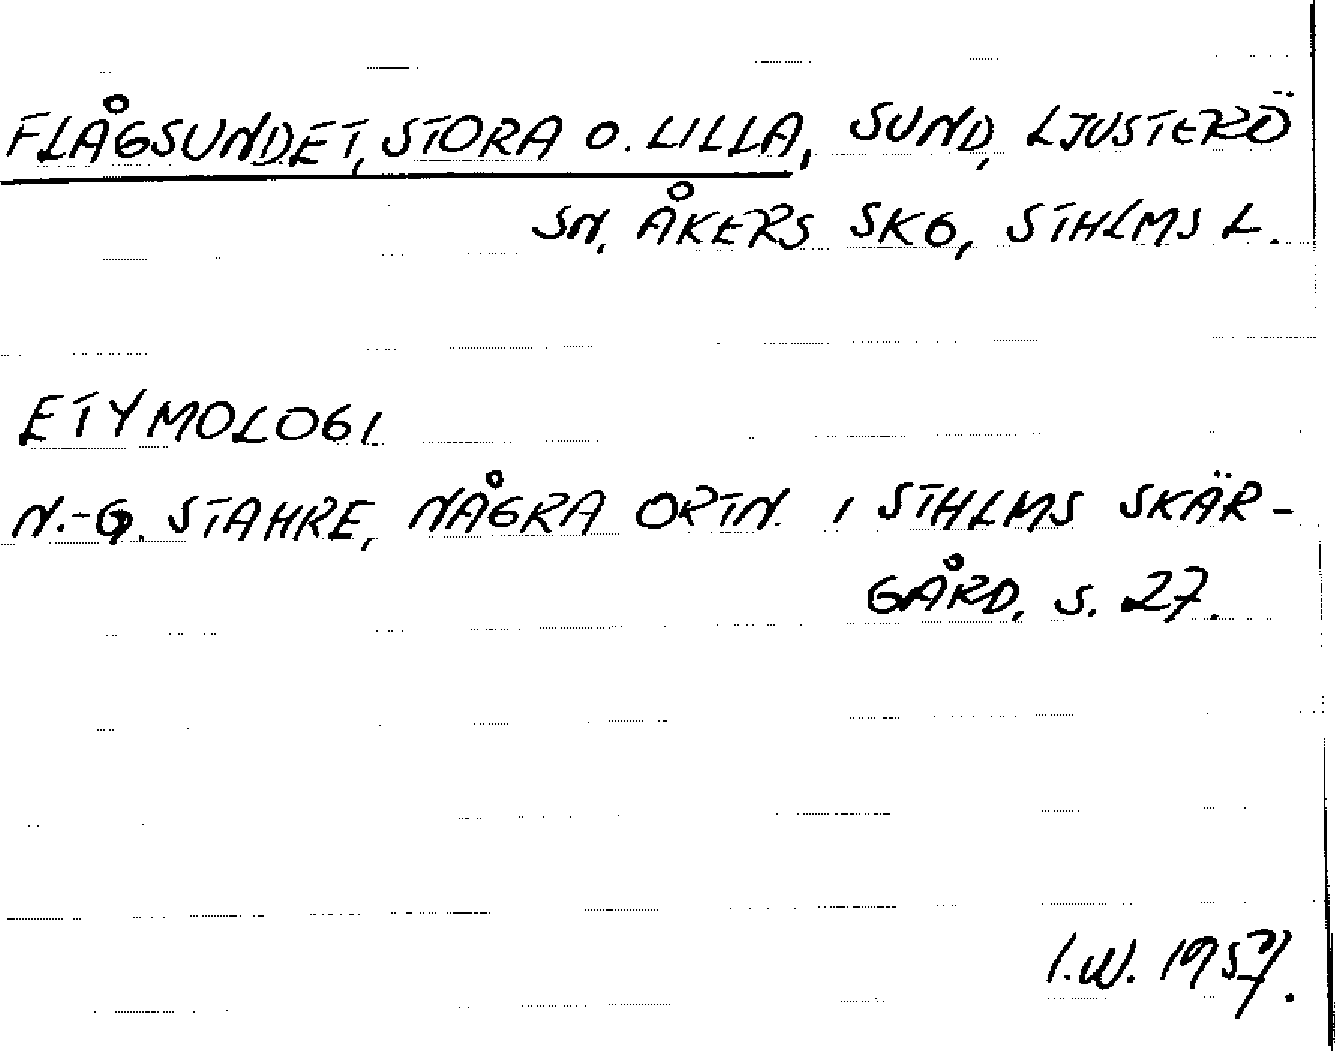 FLÅGSUNDET, STORA O. LILLA, SUND, LJUSTERÖ
SN, ÅKERS SKG, STHLMS L.
ETYMOLOGI
N.-G. STAHRE, NÅGRA ORTN. I STHLMS SKÄR-
GÅRD, S. 27.
I.W. 1957.